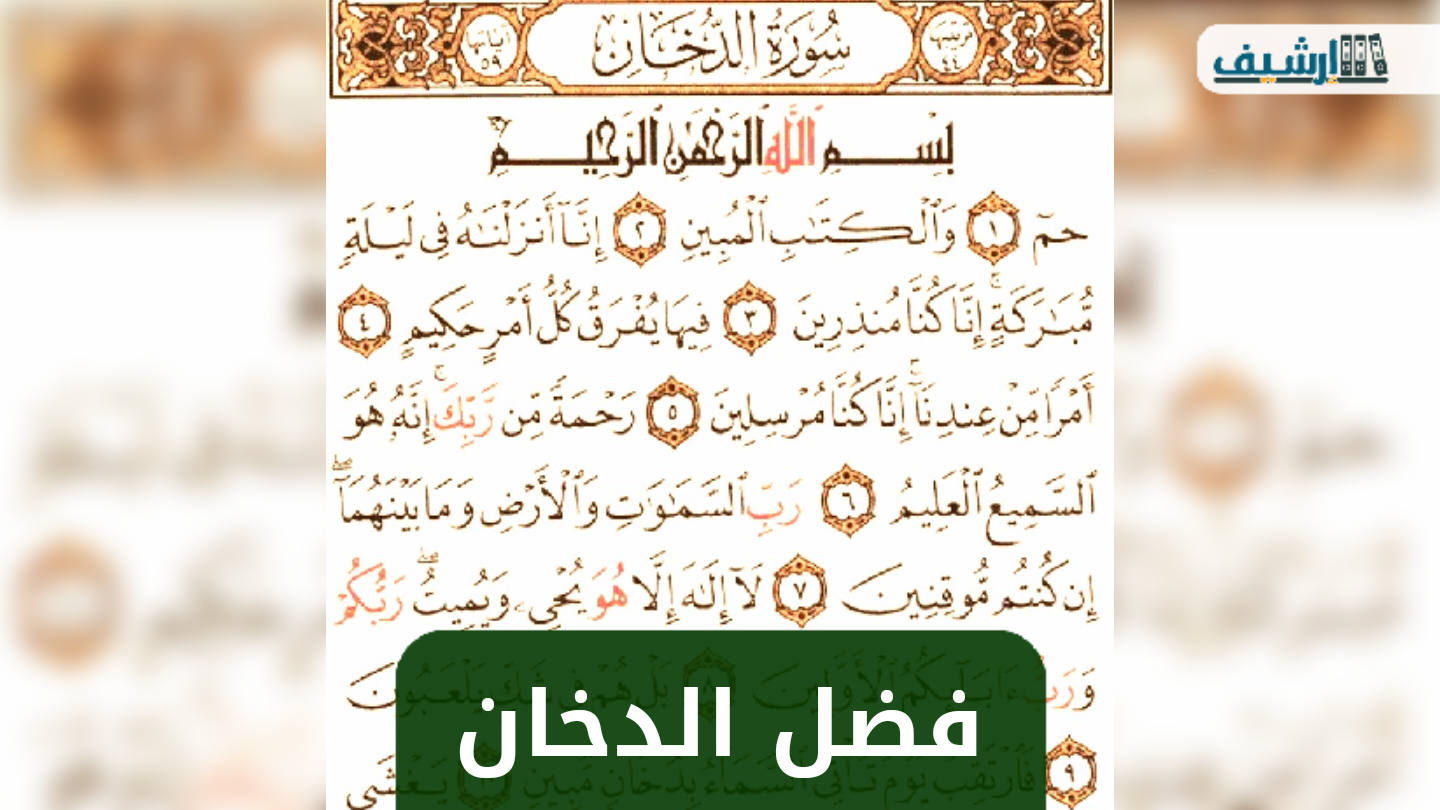 إرشيف
ترتيبها ٤٤ سُورَةُ الدُّخَانِ آياتها ٥٩
بِسْمِ ٱللَّهِ ٱلرَّحْمَٰنِ ٱلرَّحِيمِ
حمٓ ١ وَٱلْكِتَٰبِ ٱلْمُبِينِ ٢ إِنَّآ أَنزَلْنَٰهُ فِى لَيْلَةٍ
مُّبَٰرَكَةٍ ۚ إِنَّا كُنَّا مُنذِرِينَ ٣ فِيهَا يُفْرَقُ كُلُّ أَمْرٍ حَكِيمٍ ٤
أَمْرًا مِّنْ عِندِنَآ ۚ إِنَّا كُنَّا مُرْسِلِينَ ٥ رَحْمَةً مِّن رَّبِّكَ ۚ إِنَّهُۥ هُوَ
ٱلسَّمِيعُ ٱلْعَلِيمُ ٦ رَبِّ ٱلسَّمَٰوَٰتِ وَٱلْأَرْضِ وَمَا بَيْنَهُمَآ ۖ
إِن كُنتُم مُّوقِنِينَ ٧ لَآ إِلَٰهَ إِلَّا هُوَ يُحْىِۦ وَيُمِيتُ ۖ رَبُّكُمْ
وَرَبُّ ءَابَآئِكُمُ ٱلْأَوَّلِينَ ٨ بَلْ هُمْ فِى شَكٍّ يَلْعَبُونَ
٩ فَٱرْتَقِبْ يَوْمَ تَأْتِى ٱلسَّمَآءُ بِدُخَانٍ مُّبِينٍ ١٠ يَغْشَى
فضل الدخان